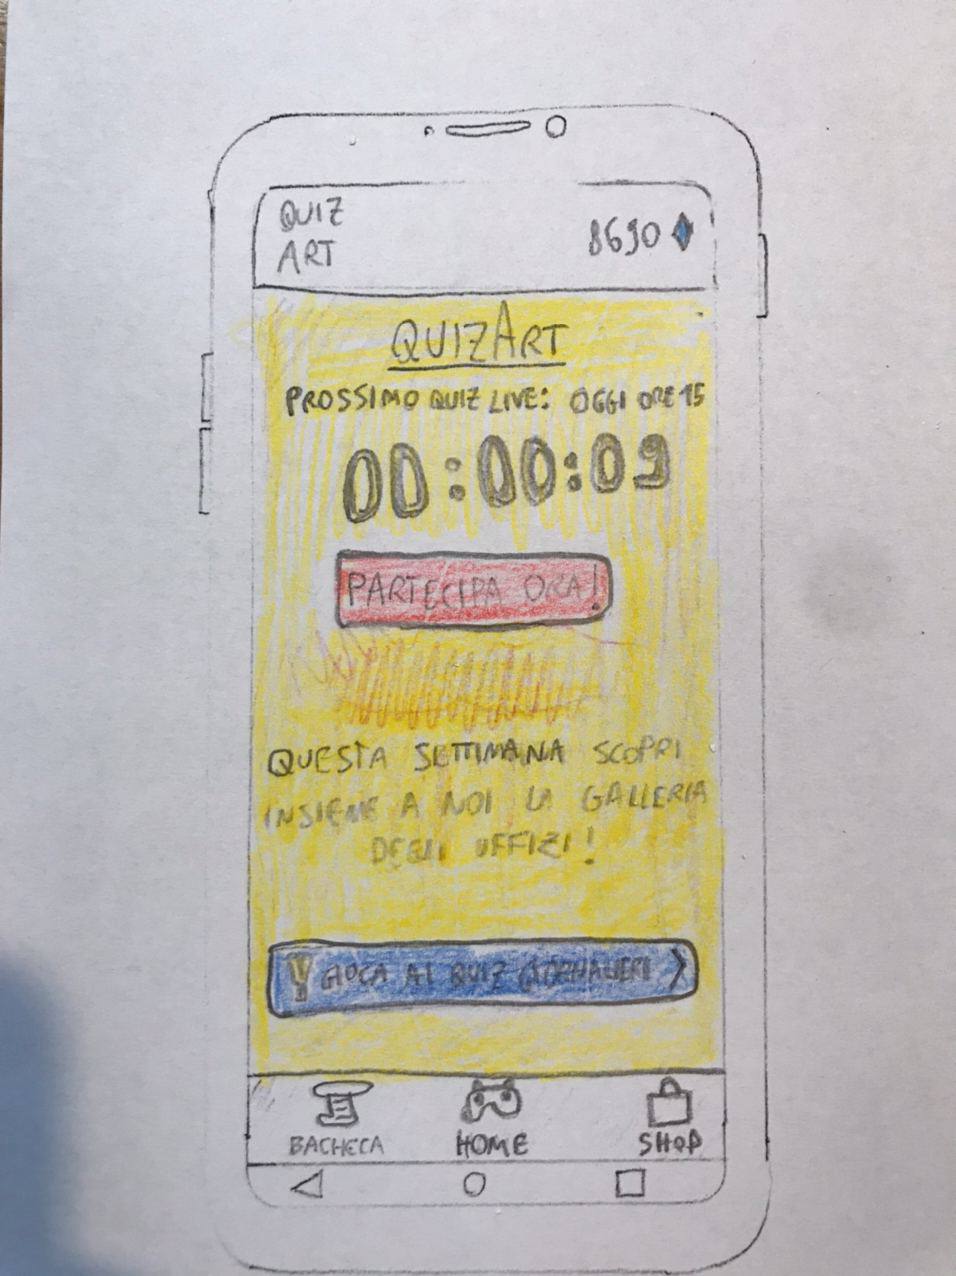 QUIZ
ART
8690
QUIZART
PROSSIMO QUIZ LIVE: OGGI ORE 15
00:00:09
PARTECIPA ORA!
QUESTA SETTIMANA SCOPRI
INSIEME A NOI LA GALLERIA
DEGLI UFFIZI!
GIOCA AI QUIZ GIORNALIERI >
BACHECA HOME SHOP